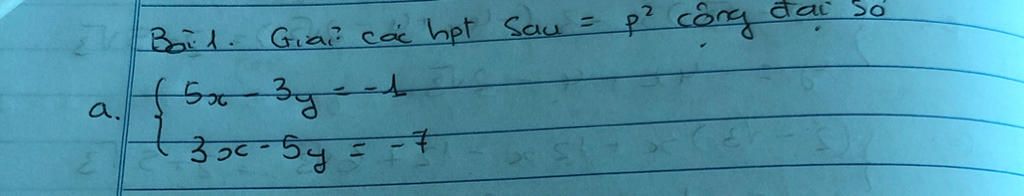 Bài 1. Giải các hpt Sau = p² cộng đại số
a. { 5x - 3y = -1
3x - 5y = -7